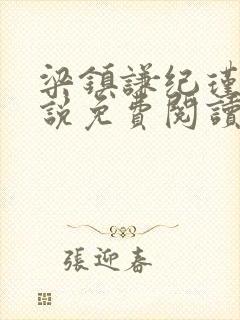 梁鎮謙纪瑾
說免費閱讀
張迎春